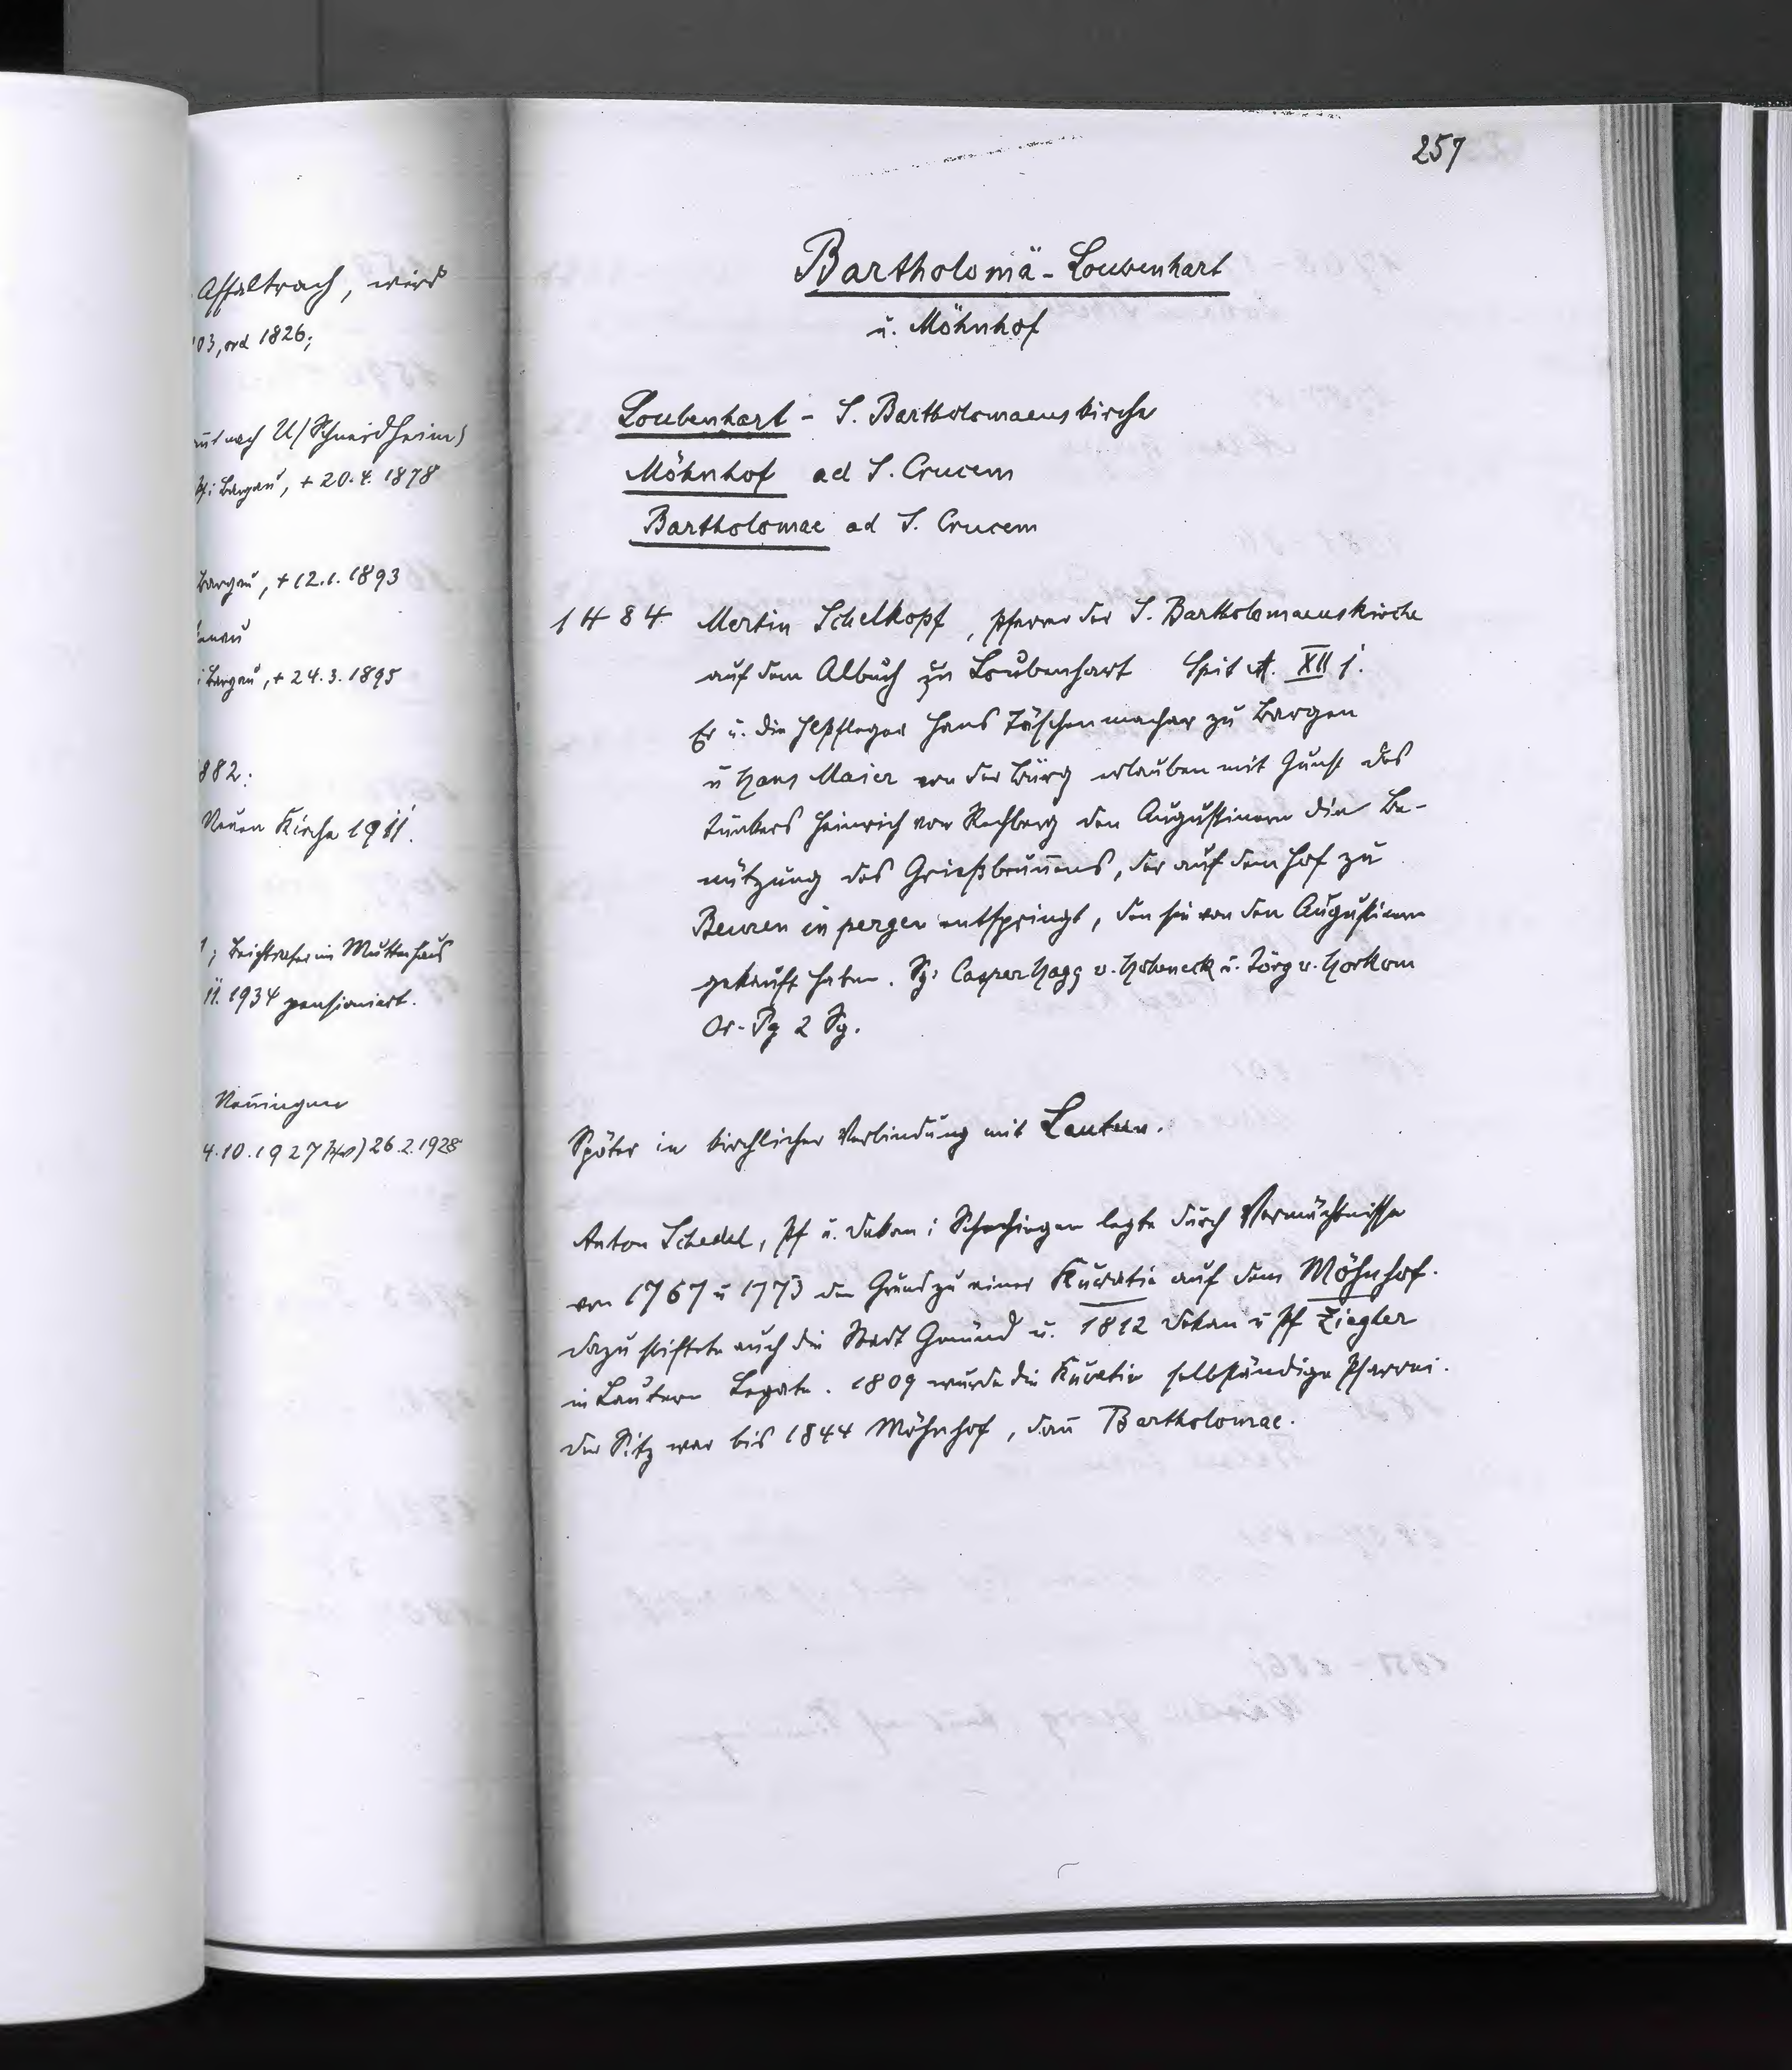 Affaltrach, wird
03, ord 1826;
nach U/Schneidheim)
Pf i Bargau, + 20.4. 1878
Bargau, + 12.1.1893
i Bargau, + 24.3.1895
882:
Neuen Kirche 1911.
1; Beichtvater im Mutterhaus
11. 1934 pensioniert.
Nenningen
4.10.1927 26.2.1928
257
Bartholomä - Loubenhart
u. Möhnhof
Loubenhart - S. Bartholomaeuskirche
Möhnhof ad S. Crucem
Bartholomae ad S. Crucem
1484 Martin Schelkopf, Pfarrer der S. Bartholomaeuskirche
auf dem Albuch zu Loubenhart Spit A. XII j.
Er u. die Hlpfleger Hans Täschenmacher zu Bargen
u Hans Maier von der Bürg erlauben mit Gunst des
Junkers Heinrich von Rechberg den Augustinern die Be-
nützung des Grießbrun̄ens, der auf dem Hof zu
Beuren in pergen entspringt, den sie von den Augustinern
gekauft haben. Sg: Casper Hagg v. Hoheneck u. Jörg v. Horkom
Or-Pg 2 Sg.
Später in kirchlicher Verbindung mit Lautern.
Anton Schedel, Pf u. Dekan i Schechingen legte durch Vermächtnisse
von 1767 u 1773 den Grund zu einer Kuratie auf dem Möhnhof.
dazu stiftete auch die Stadt Gmünd u. 1812 Dekan u Pf Ziegler
in Lautern Legate. 1809 wurde die Kuratie selbständige Pfarrei.
Der Sitz war bis 1844 Möhnhof, dan̄ Bartholomae.